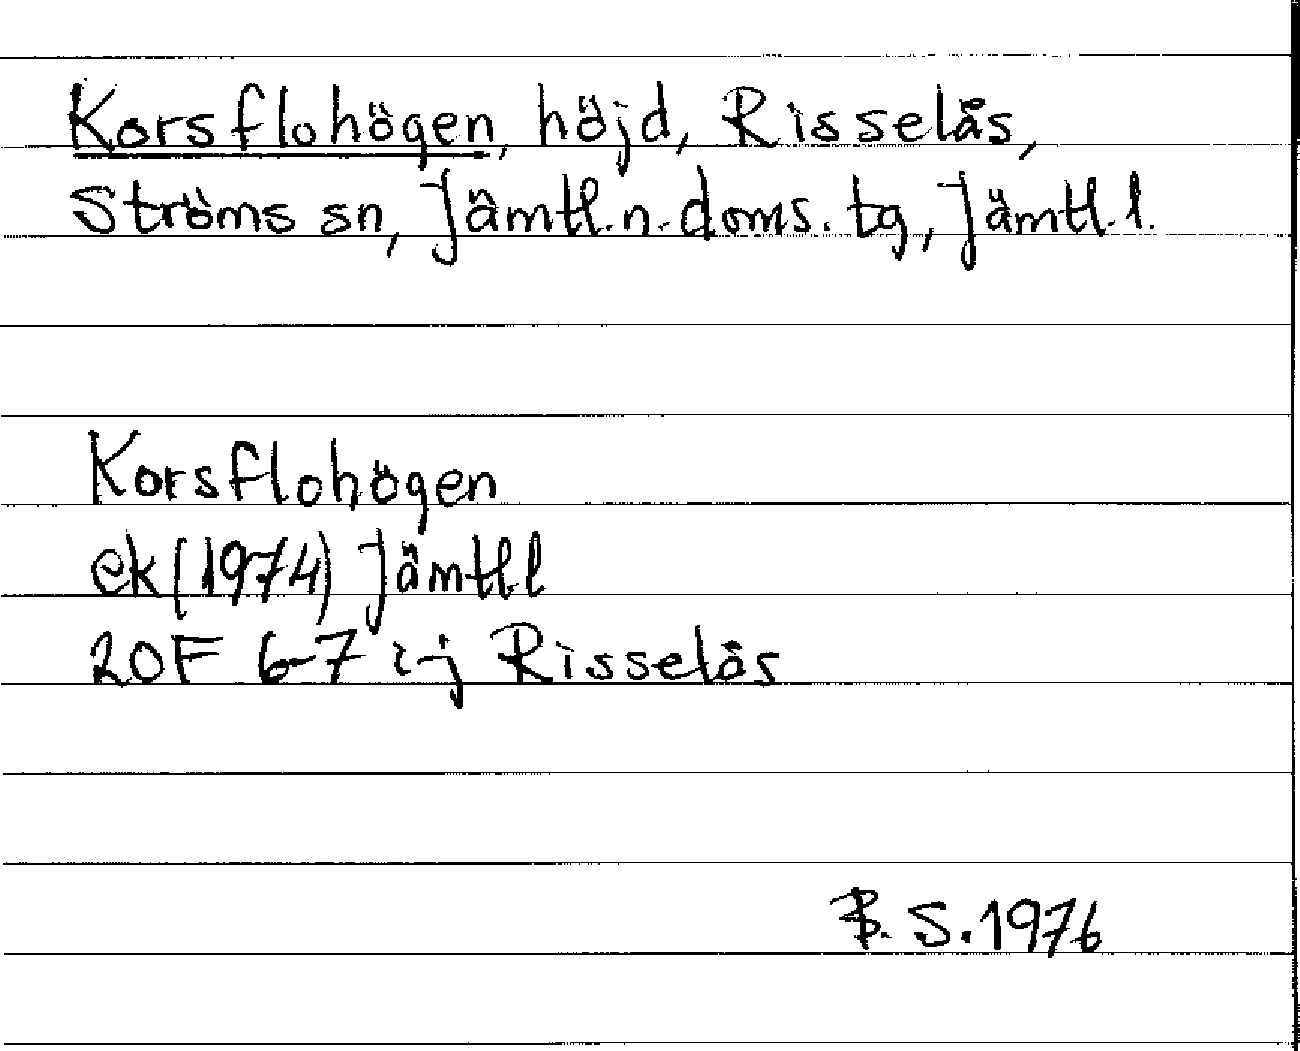 Korsflohögen, höjd, Risselås,
Ströms sn, Jämtl.n.doms.tg, Jämtl.l.
Korsflohögen
ek (1974) Jämtl.l
20F 6-7 i-j Risselås
B.S.1976